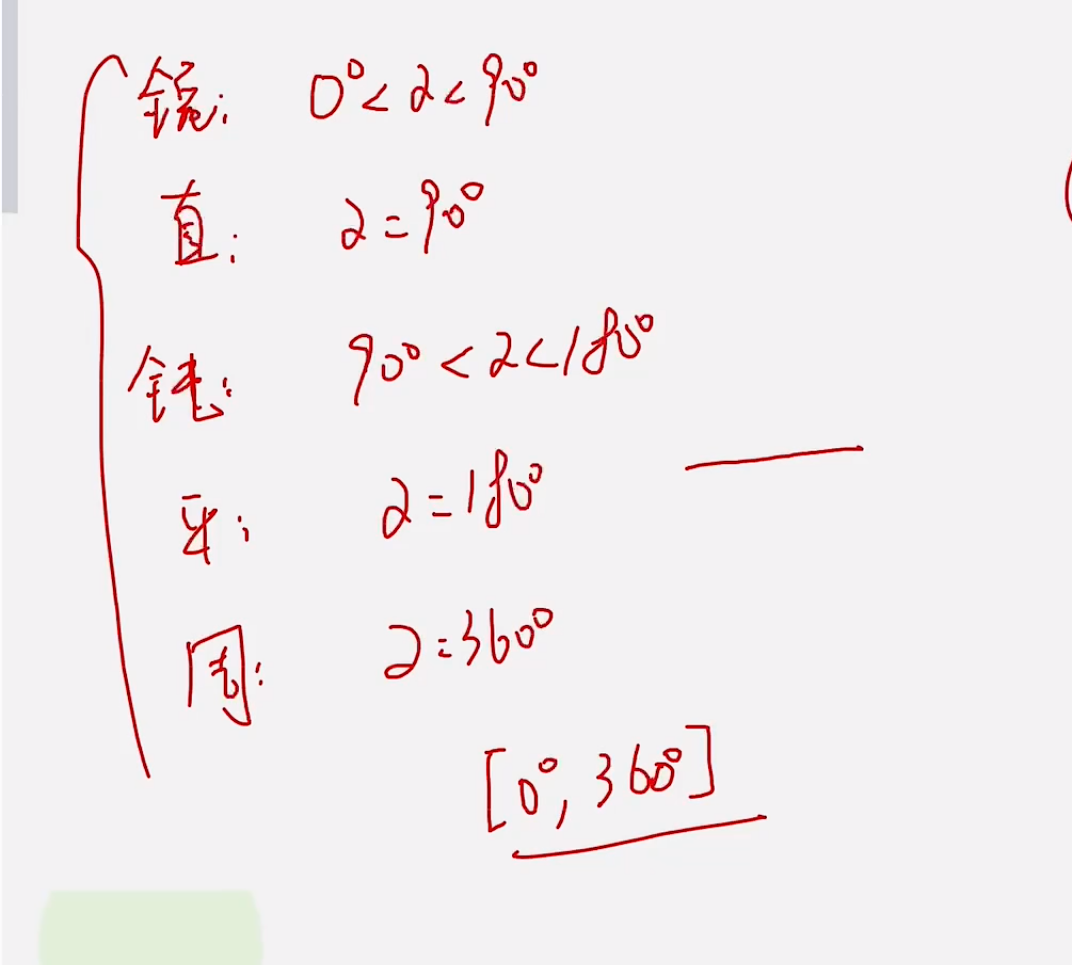 锐: 0°<α<90°
直: α=90°
钝: 90°<α<180°
平: α=180°
周: α=360°
[0°, 360°]